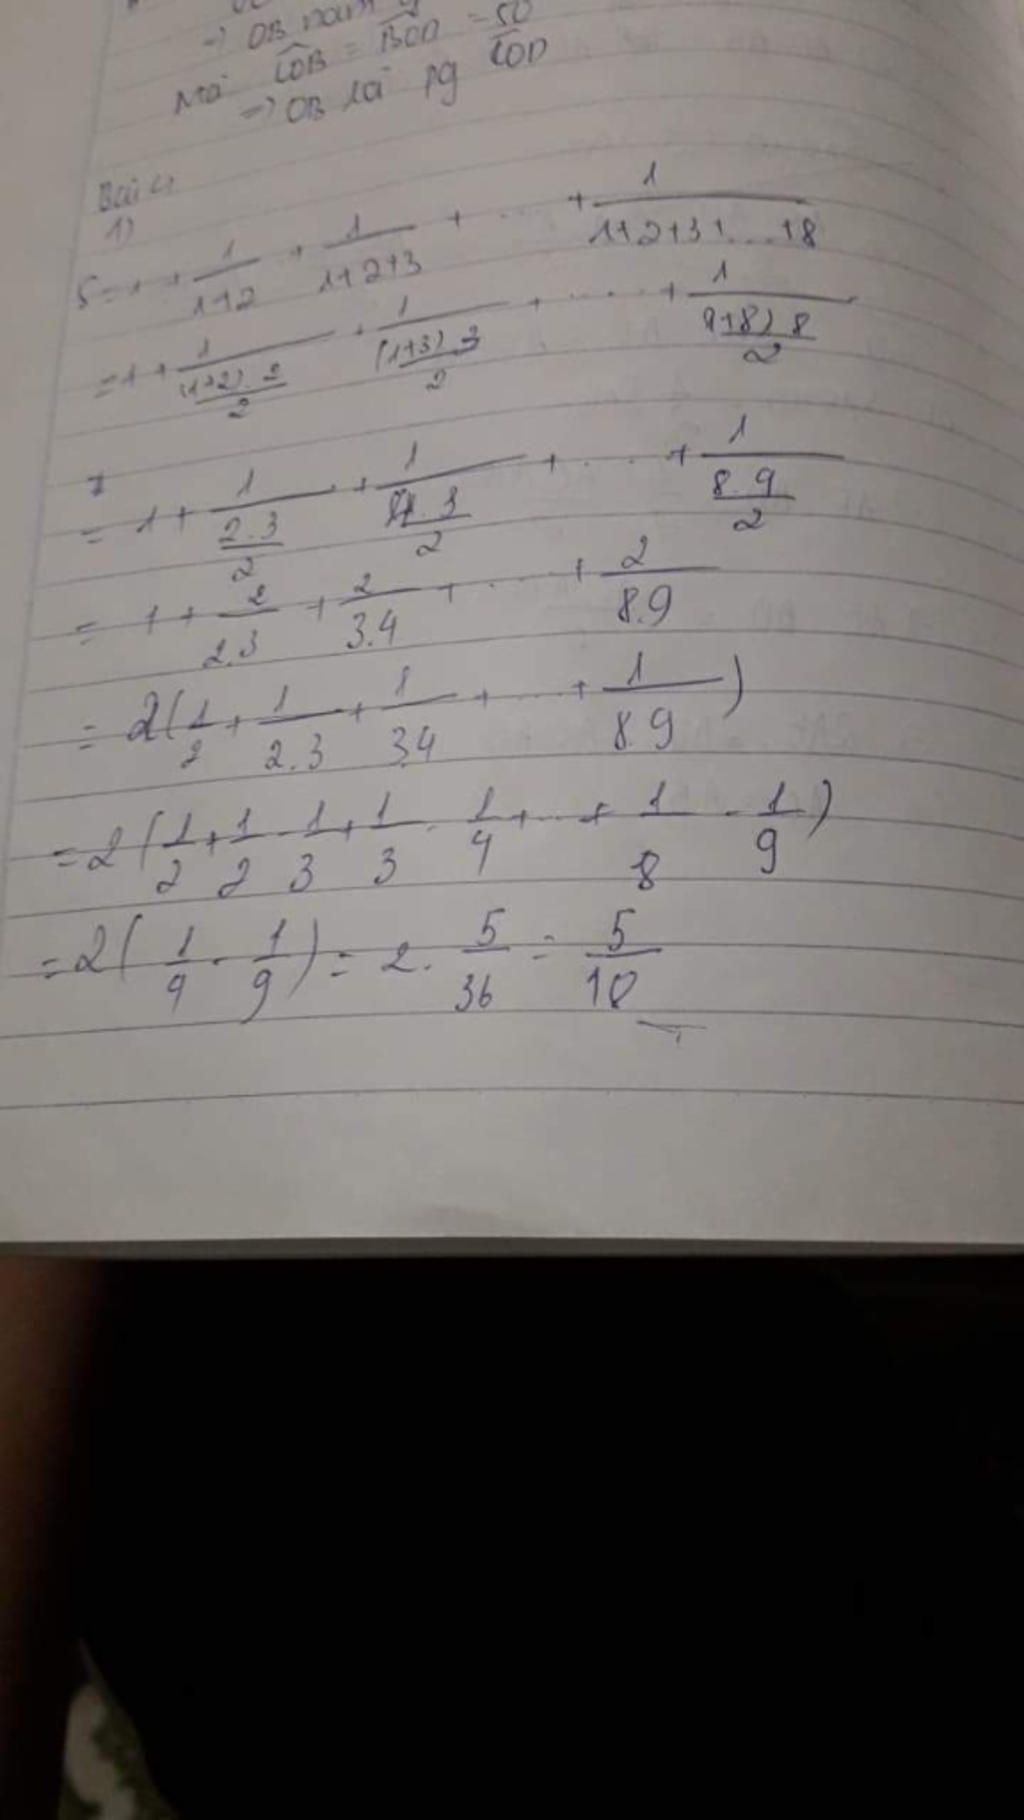 -> OB nằm
Mà COB = BOD = 50
=> OB là pg COD
Bài 4
1)
S = 1 + 1/(1+2) + 1/(1+2+3) + .... + 1/(1+2+3+...+8)
= 1 + 1/((1+2).2/2) + 1/((1+3).3/2) + ..... + 1/((1+8).8/2)
= 1 + 1/(2.3/2) + 1/(4.3/2) + .... + 1/(8.9/2)
= 1 + 2/2.3 + 2/3.4 + .... + 2/8.9
= 2(1/2 + 1/2.3 + 1/3.4 + .... + 1/8.9)
= 2(1/2 + 1/2 - 1/3 + 1/3 - 1/4 + ... + 1/8 - 1/9)
= 2(1/4 - 1/9) = 2. 5/36 = 5/18